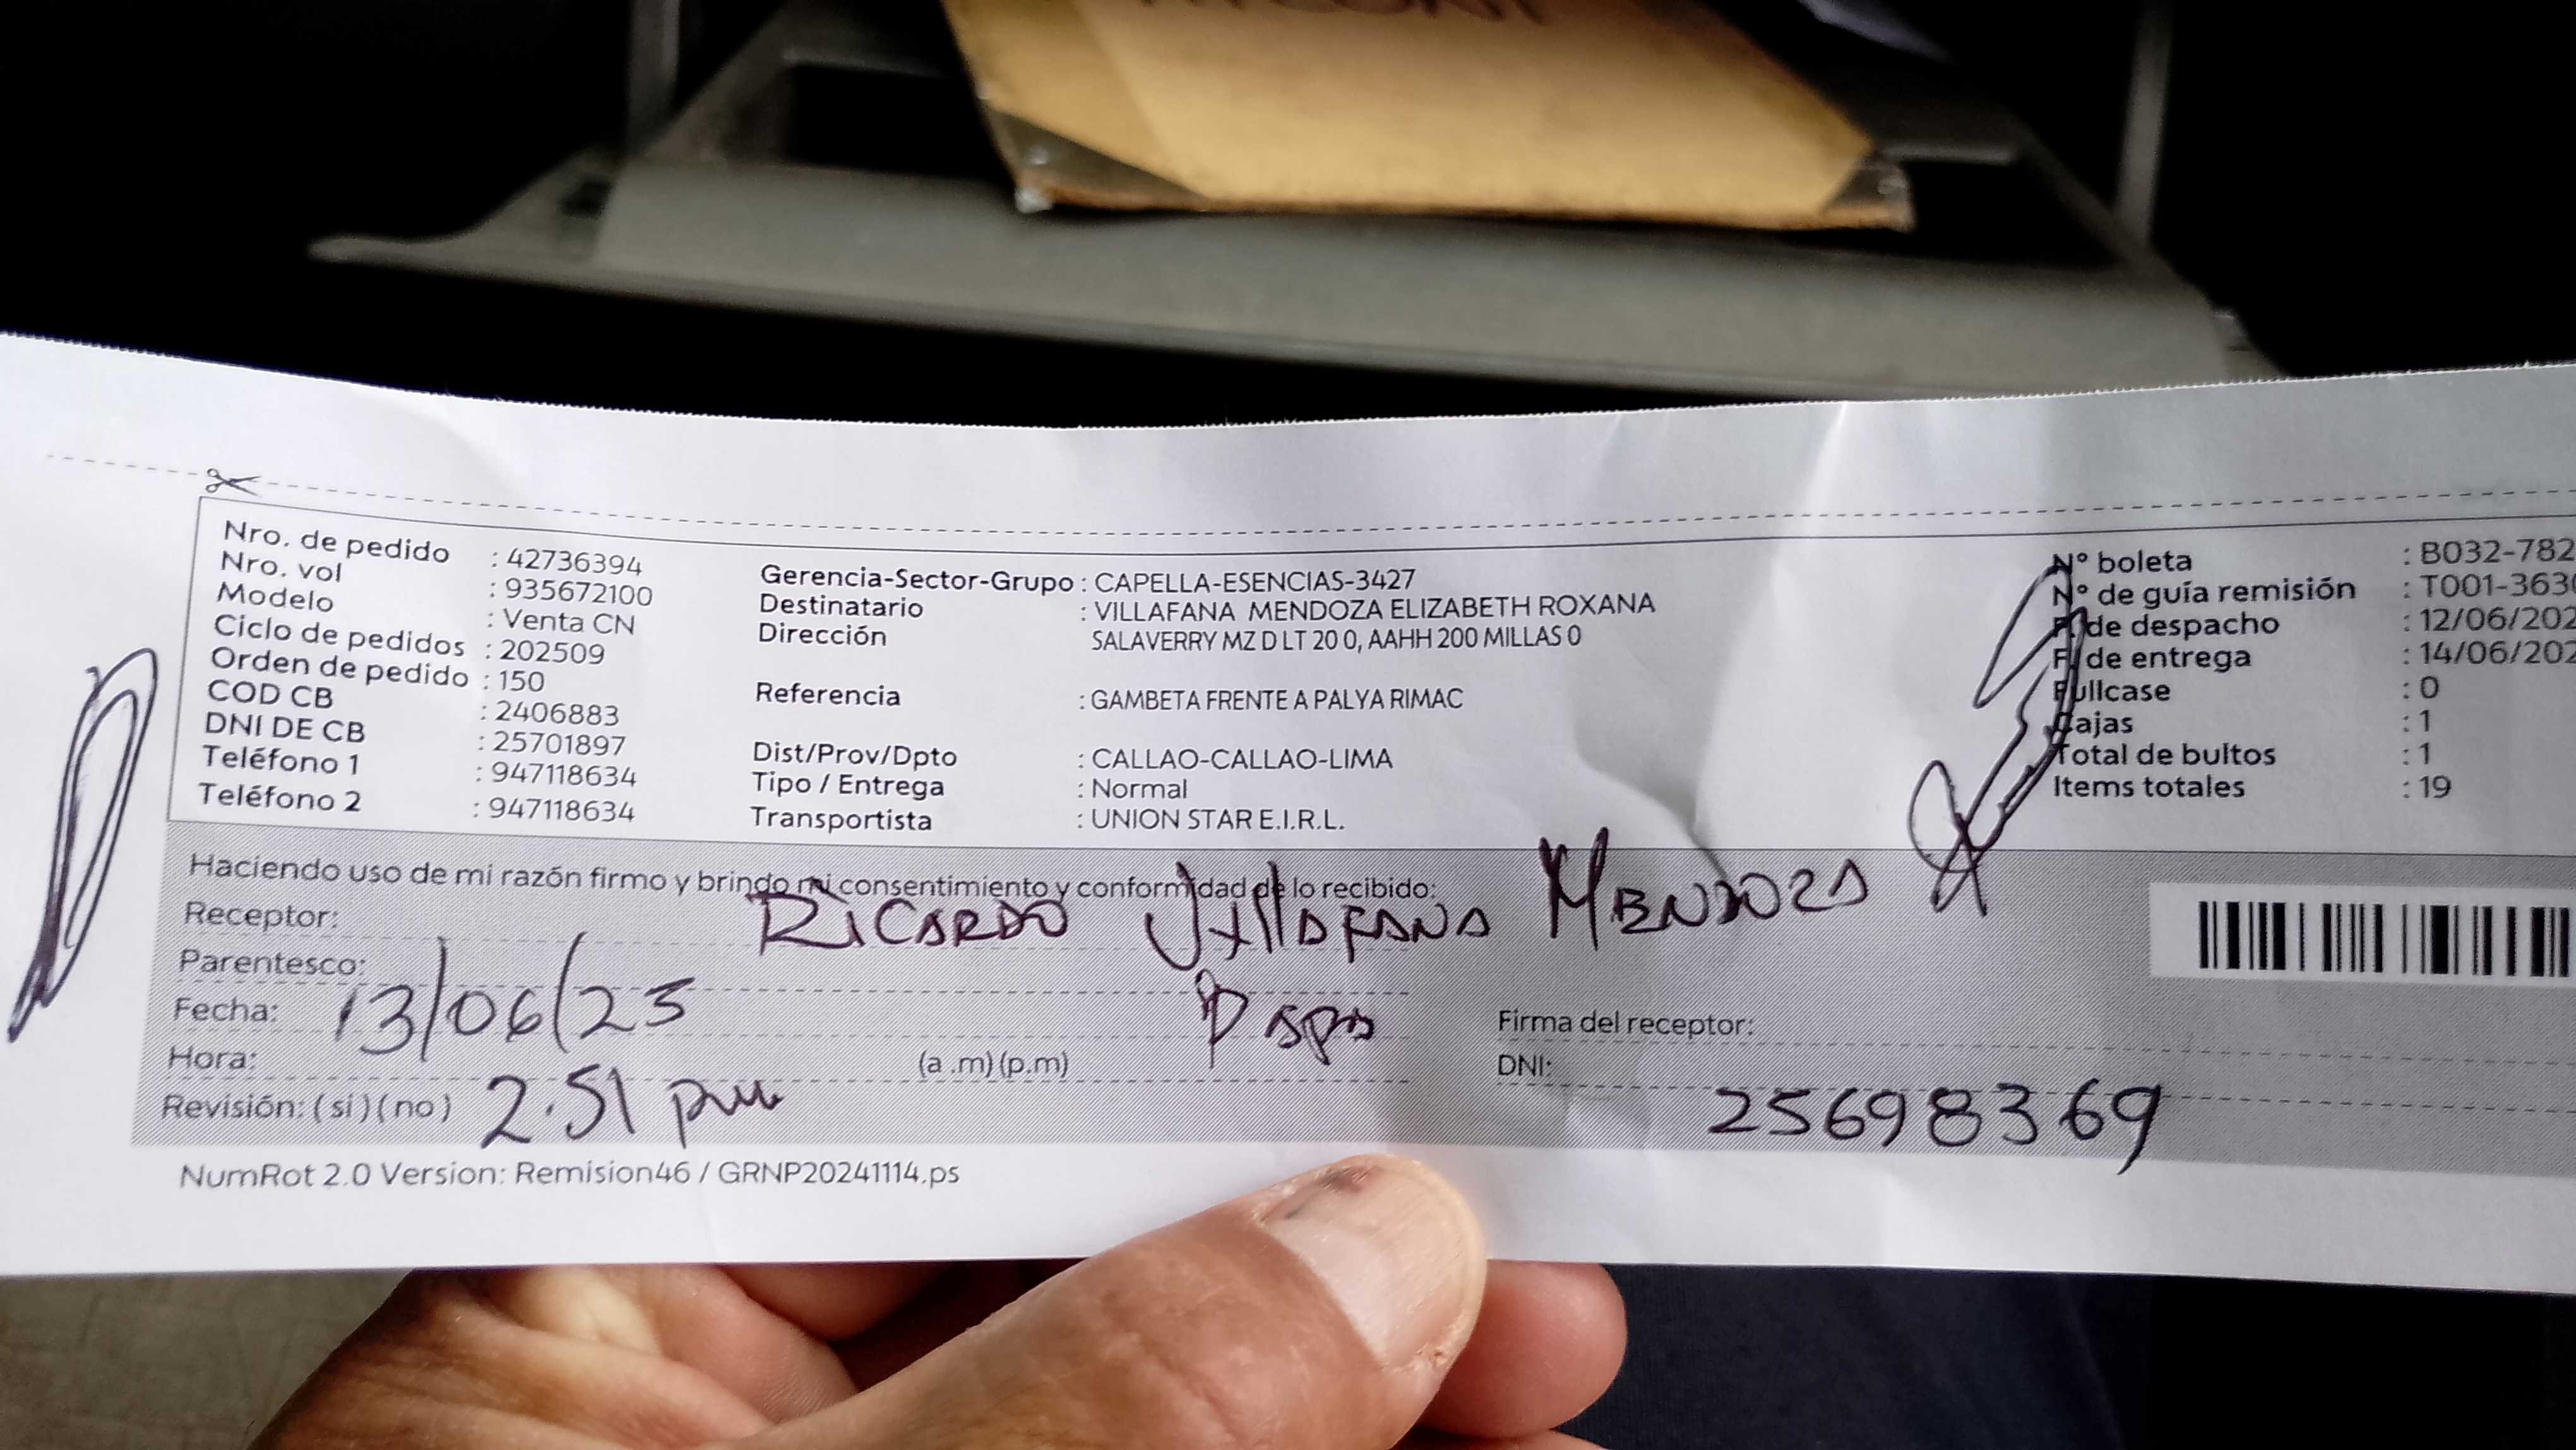 Nro. de pedido : 42736394
Nro. vol : 935672100
Modelo : Venta CN
Ciclo de pedidos : 202509
Orden de pedido : 150
COD CB : 2406883
DNI DE CB : 25701897
Teléfono 1 : 947118634
Teléfono 2 : 947118634
Gerencia-Sector-Grupo : CAPELLA-ESENCIAS-3427
Destinatario : VILLAFANA MENDOZA ELIZABETH ROXANA
Dirección SALAVERRY MZ D LT 20 0, AAHH 200 MILLAS 0
Referencia : GAMBETA FRENTE A PALYA RIMAC
Dist/Prov/Dpto : CALLAO-CALLAO-LIMA
Tipo / Entrega : Normal
Transportista : UNION STAR E.I.R.L.
N° boleta : B032-782
N° de guía remisión : T001-363
F. de despacho : 12/06/202
F. de entrega : 14/06/202
Fullcase : 0
Cajas : 1
Total de bultos : 1
Items totales : 19
Haciendo uso de mi razón firmo y brindo mi consentimiento y conformidad de lo recibido:
Receptor: RICARDO VILLAFANA MENDOZA
Parentesco: Papa
Fecha: 13/06/25
Hora: (a .m) (p.m)
2.51 pm
Revisión: ( si ) ( no )
Firma del receptor:
DNI: 25698369
NumRot 2.0 Version: Remision46 / GRNP20241114.ps